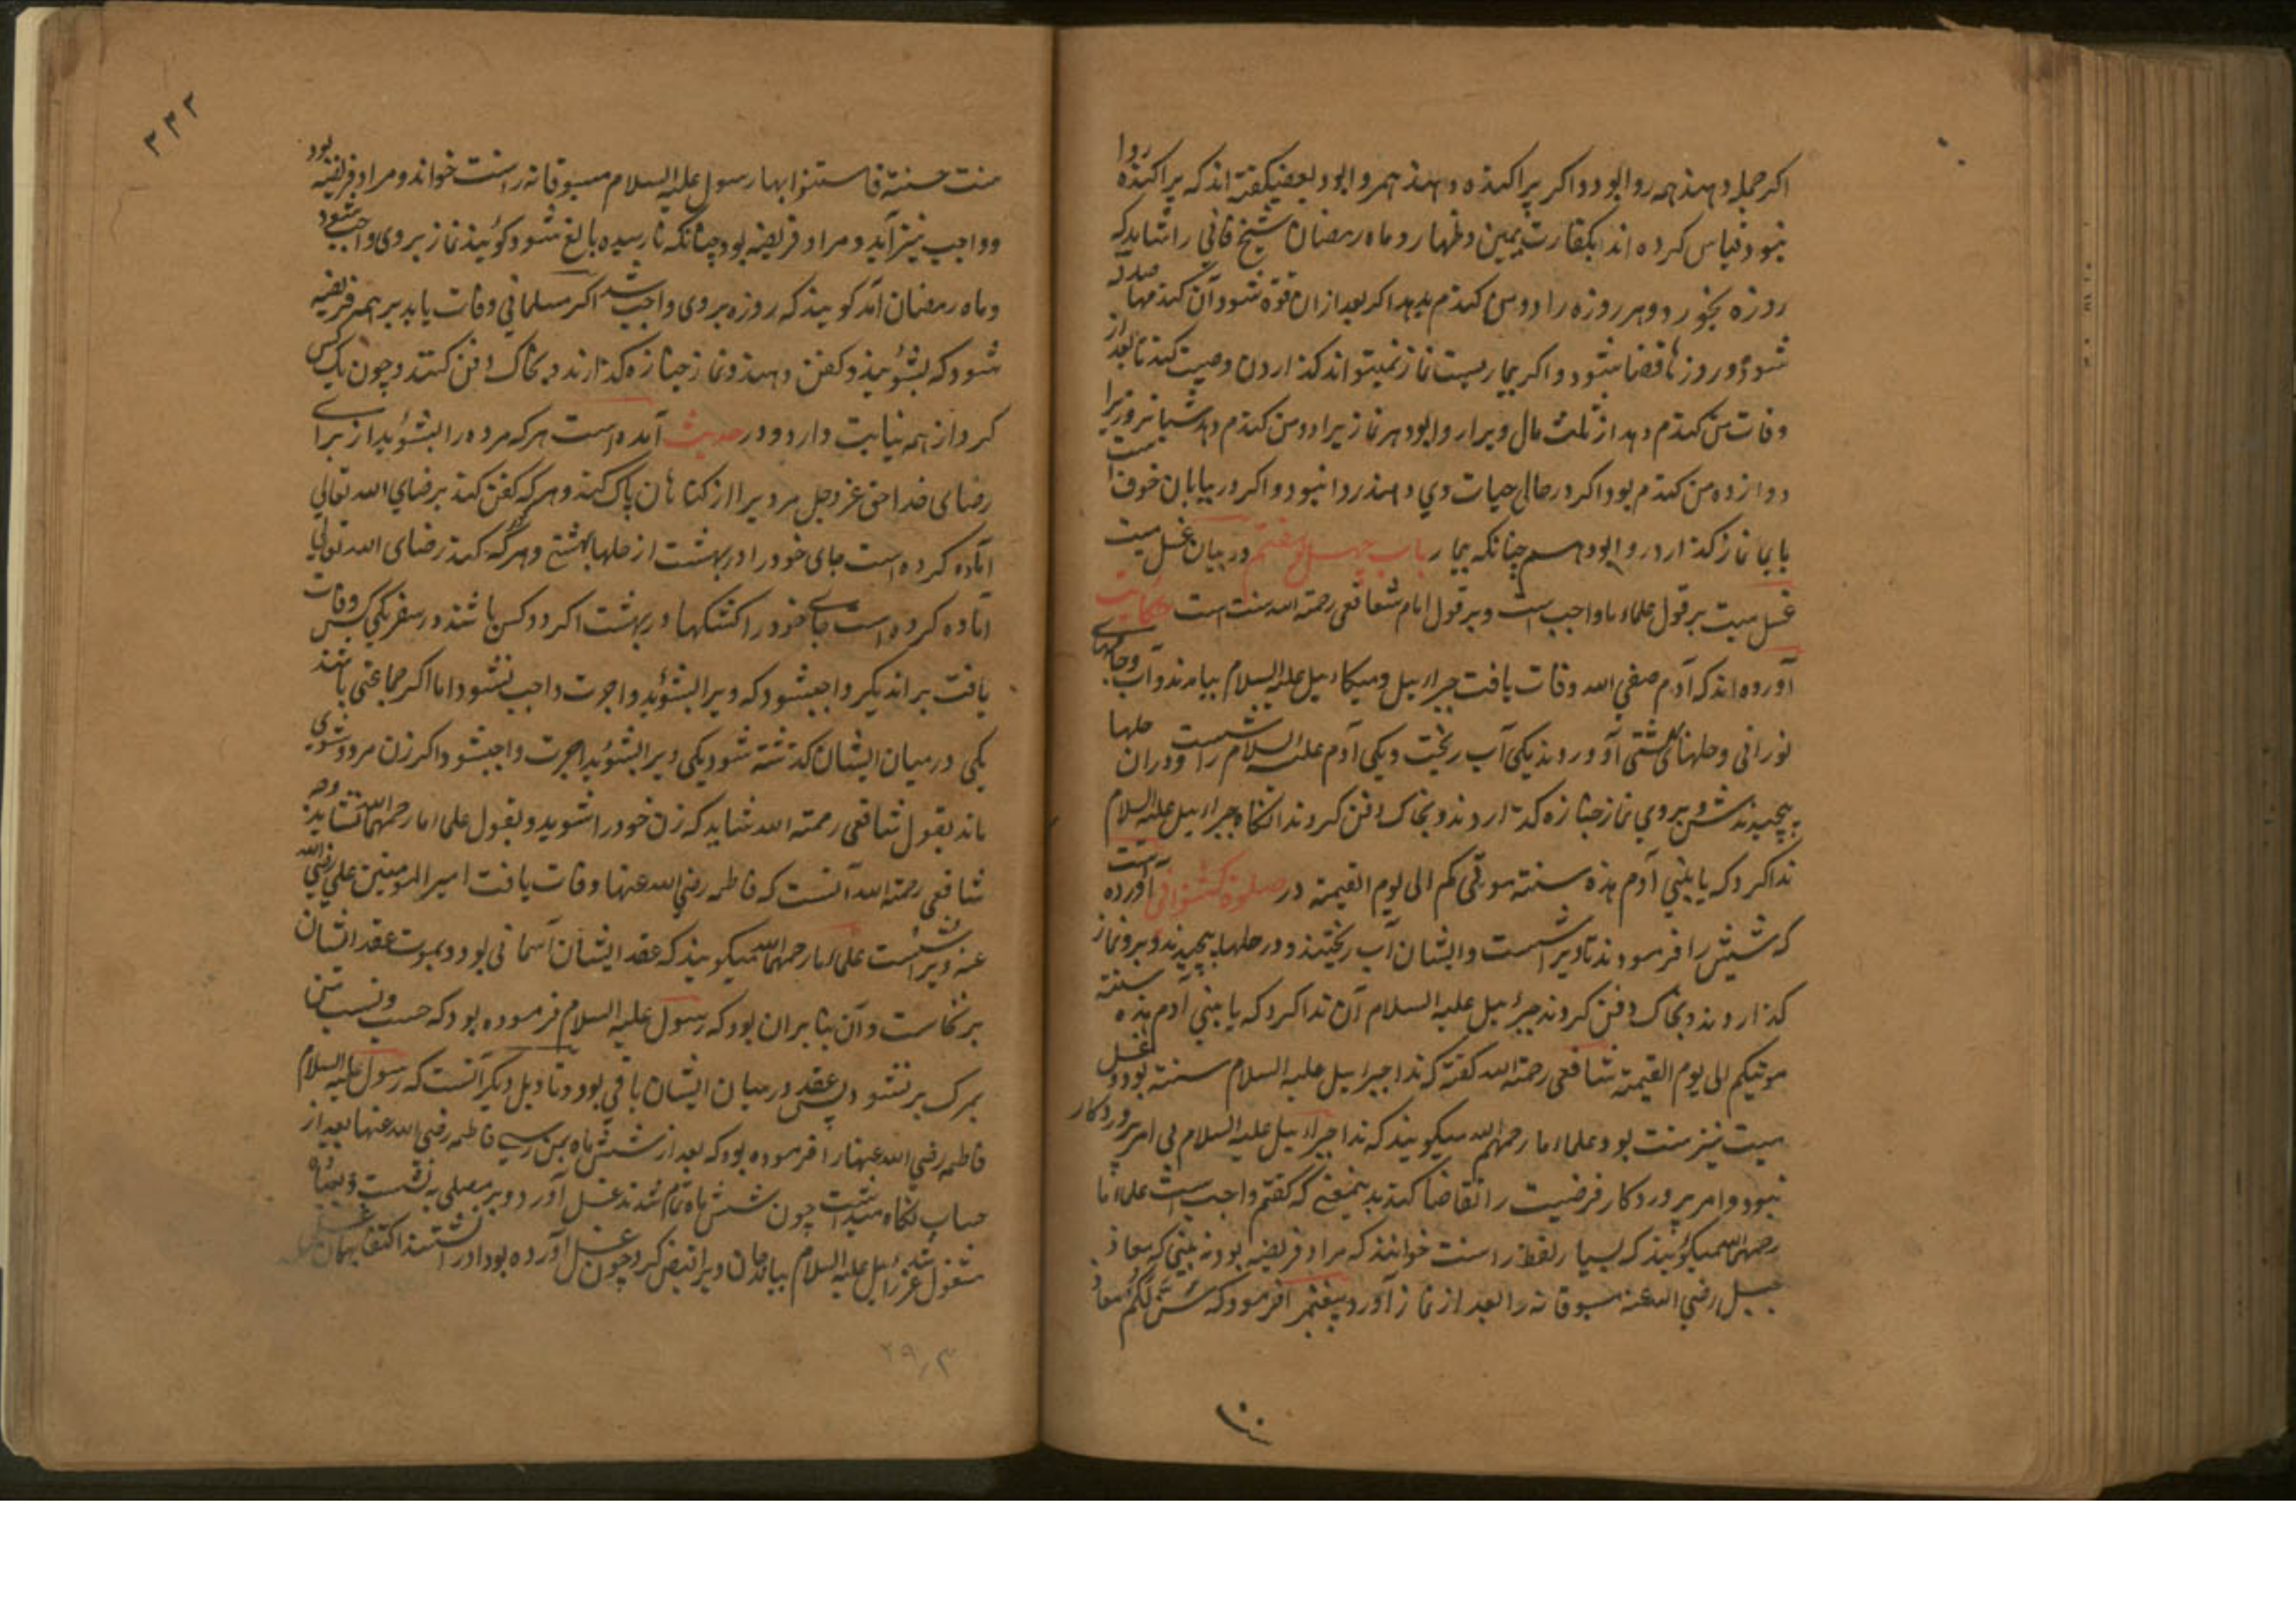 اکر جمله دهند همه روا بود و اکر پراکنده دهند همروا بود بعضی کفته اند که پراکنده روا
نبود قیاس کرده اند بکفارت یمین و ظهار و ماه رمضان شیخ فانی را شاید که
روزه بخورد و هر روزه را دو من کندم بدهد اکر بعد ازان قوة شود آن کندمها صدقه
شود و روزها قضا شود و اکر بیماریست نماز نمیتواند کذاردن وصیت کند تا بعد از
وفات من کندم دهد از ثلث مال ویرا روا بود هر نمازیرا دو من کندم دهد شبانروزیرا
دوازده من کندم بود اکر در حال حیات وی دهند روا نبود و اکر در بیابان خوف است
بایما نماز کذارد روا بود هم چنانکه بیمار باب چهل و هفتم در بیان غسل میت
غسل میت بر قول علماء ما واجب است و بر قول امام شافعی رحمة الله سنت است حکایت
آورده اند که آدم صفی الله وفات یافت جبرایل و میکاییل علیه السلام بیامدند و آب و جامهای
نورانی و حلهای بهشتی آوردند یکی آب ریخت و یکی آدم علیه السلام را شست و دران حلها
بپیچیدندش و بروی نماز جنازه کذاردند و بخاک دفن کردند آنکاه جبراییل علیه السلام
ندا کرد که یا بنی آدم هذه سنته موتی کم الی یوم القیمة در صلوة آورده است
که شیث را فرمودند تا ویرا شست و ایشان آب ریختند و در حلها بپیچیدند و برو نماز
کذاردند و بخاک دفن کردند جبرئیل علیه السلام آن ندا کرد که یا بنی آدم هذه سنته
موتیکم الی یوم القیمة شافعی رحمة الله کفته که ندا جبراییل علیه السلام سنته بود و غسل
میت نیز سنت بود علماء ما رحمهم الله میکویند که ندا جبراییل علیه السلام بی امر پروردکار
نبود و امر پروردکار فرضیت را تقاضا کند بدینمعنی که کفتم واجب است علماء ما
رحمهم الله میکوئیند که بسیار لفظ را سنت خوانند که مراد فریضه بود نه بینی که معاذ
جبل رضی الله عنه مسبوقانه را بعد از نماز آورد پیغمبر فرمود که سَنَّ لَکُم مُعاذ
۳۳۲
سنت حسنة فاستنوا بها رسول علیه السلام مسبوقانه را سنت خواند و مراد فریضه بود
و واجب نیز آید و مراد فریضه بود چنانکه نارسیده بالغ شود کوئیند نماز بروی واجب شود
و ماه رمضان آمد کویند که روزه بروی واجب شد اکر مسلمانی وفات یابد بر همه فریضه
شود که بشوئیند و کفن دهند و نماز جنازه کذارند و بخاک دفن کنند و چون یک کس
کرد از همه نیابت دارد و در حدیث آمده است هر که مرده را بشوید از برای
رضای خدا حق عز و جل مر ویرا از کناهان پاک کند و هر که کفن کند برضای الله تعالی
آماده کرده است جای خود را در بهشت از حلها بهشتی و هر که کند رضای الله تعالی
آماده کرده است جای خود را کشکها در بهشت اکر دو کس باشند در سفر یکی کس وفات
یافت بران دیکر واجبشود که ویرا بشوئید و اجرت واجب نشود اما اکر جماعتی باشند
یکی در میان ایشان کذشته شود یکی ویرا بشوئید اجرت واجبشود و اکر زن مرد و شوی
ماند بقول شافعی رحمته الله شاید که زن خود را شوید و بقول علماء ما رحمهم الله نشاید وجه
شافعی رحمة الله آنست که فاطمه رضی الله عنها وفات یافت امیر المومنین علی رضی الله
عنه ویرا شست علماء ما رحمهم الله میکویند که عقد ایشان آسمانی بود و بموت عقد ایشان
برنخاست و آن بنابران بود که رسول علیه السلام فرموده بود که حسب و نسب من
بمرک بر نشود پس عقد در میان ایشان باقی بود و تاویل دیکر آنست که رسول علیه السلام
فاطمه رضی الله عنها را فرموده بود که بعد از شش ماه بمن رسی فاطمه رضی الله عنها بعد از
حساب نکاه میداشت چون شش ماه تمام شد غسل آورد و بر مصلی بنشست و بدعا
مشغول شد عزرائیل علیه السلام بیامد جان ویرا قبض کرد چون غسل آورده بود او را نشستند اکتفا بهمان غسل
۲۹٫۳